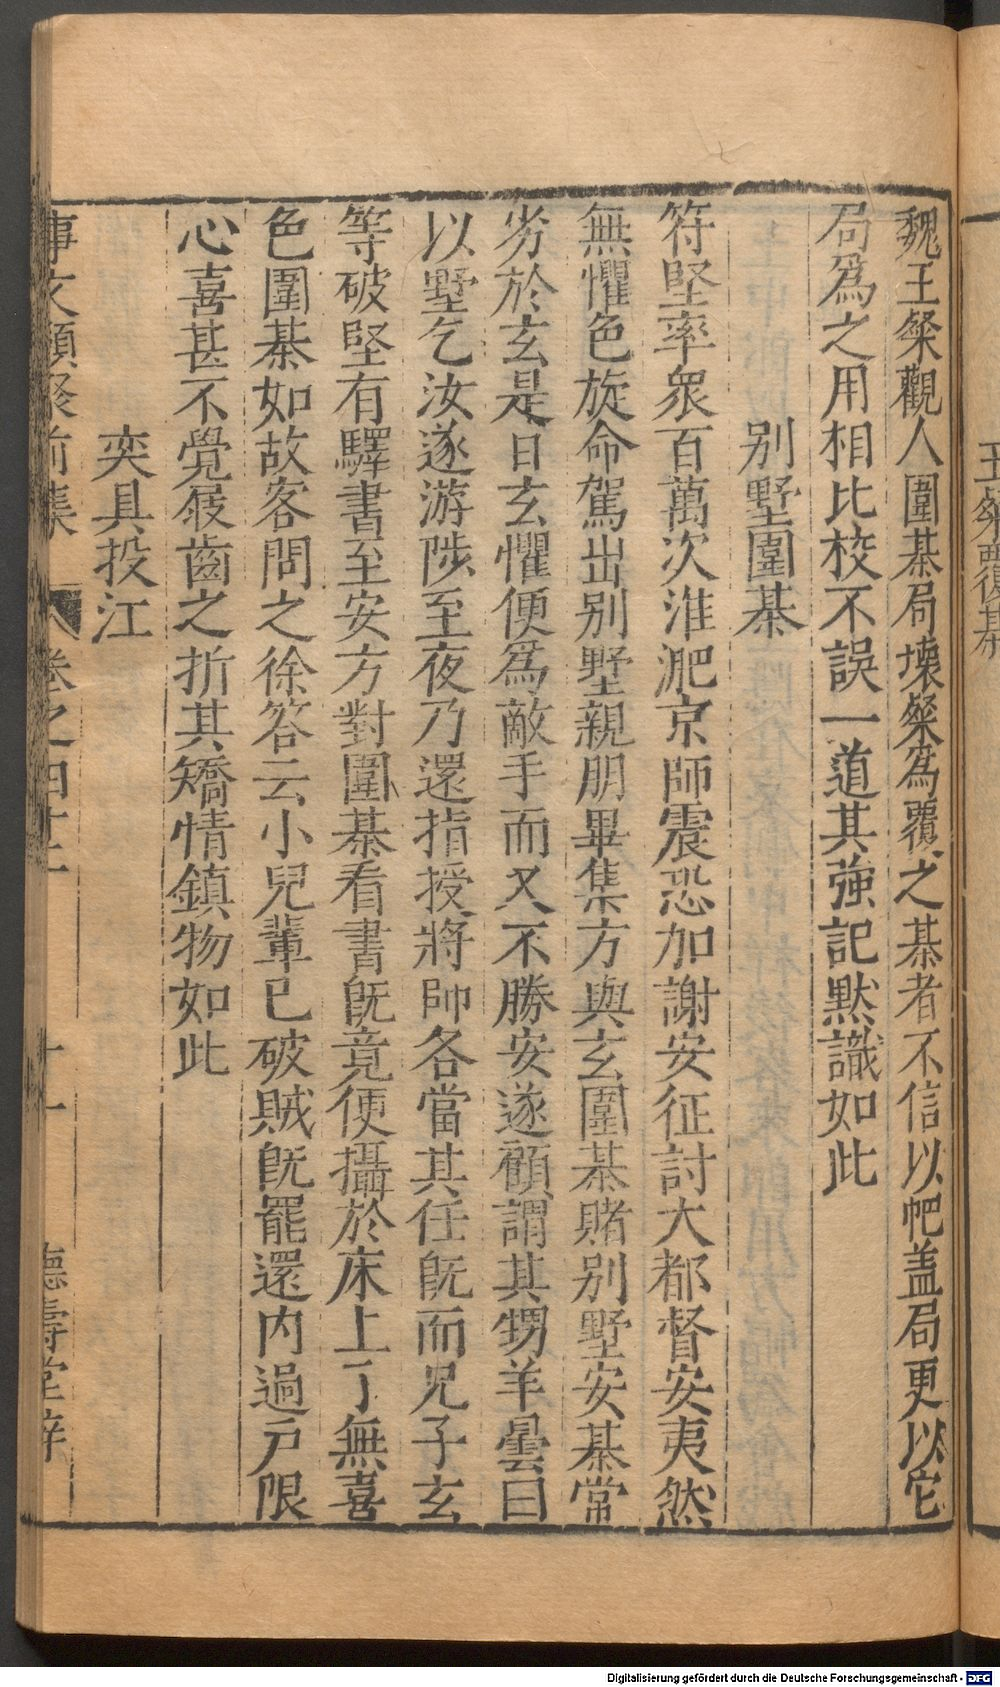 王粲覆棊
魏王粲觀人圍棊局壞粲爲覆之棊者不信以帊盖局更以它
局爲之用相比校不誤一道其強記黙識如此
别墅圍棊
符堅率衆百萬次淮淝京師震恐加謝安征討大都督安夷然
無懼色旋命駕出别墅親朋畢集方與玄圍棊賭别墅安棊常
劣於玄是日玄懼便爲敵手而又不勝安遂顧謂其甥羊曇曰
以墅乞汝遂游陟至夜乃還指授將帥各當其任旣而兄子玄
等破堅有驛書至安方對圍棊看書旣竟便攝於床上了無喜
色圍棊如故客問之徐答云小兒輩已破賊旣罷還内過戸限
心喜甚不覺屐齒之折其矯情鎮物如此
奕具投江
事文類聚前集 卷之四十二 十一 德壽堂梓
Digitalisierung gefördert durch die Deutsche Forschungsgemeinschaft - DFG